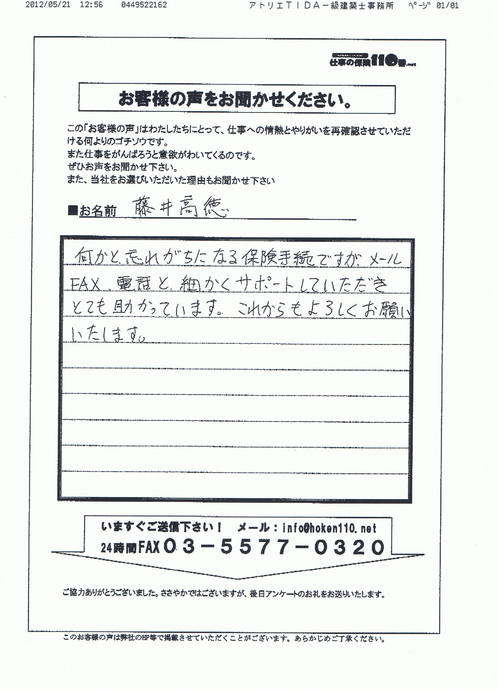 2012/05/21 12:56 0449522162 アトリエTIDA一級建築士事務所 ページ 01/01
仕事の保険110番.net
お客様の声をお聞かせください。
この「お客様の声」はわたしたちにとって、仕事への情熱とやりがいを再確認させていただ
ける何よりのゴチソウです。
また仕事をがんばろうと意欲がわいてくるのです。
ぜひお声をお聞かせ下さい。
また、当社をお選びいただいた理由もお聞かせ下さい
■お名前 藤井高徳
何かと、忘れがちになる保険手続ですが メール
FAX、電話と、細かくサポートしていただき
とても助かっています。これからもよろしくお願い
いたします。
いますぐご送信下さい！ メール：info@hoken110.net
24時間FAX０３－５５７７－０３２０
ご協力ありがとうございました。ささやかではございますが、後日アンケートのお礼をお送りいたします。
このお客様の声は弊社のHP等で掲載させていただくことがございます。あらかじめご了承ください。